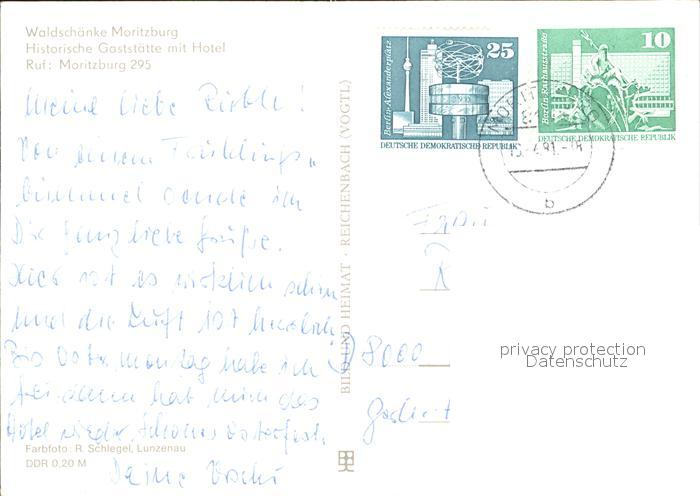 Waldschänke Moritzburg
Historische Gaststätte mit Hotel
Ruf: Moritzburg 295
Meine liebe !
Von einem Frühlings-
bummel sende ich
Dir ganz liebe Grüße.
Hier ist es wirklich schön
und die Luft ist herrlich
Bis Ostermontag habe ich
frei dann hat mich das
Hotel wieder. Schönes Osterfest.
Deine Uschi
Farbfoto: R. Schlegel, Lunzenau
DDR 0,20 M
BILD UND HEIMAT · REICHENBACH (VOGTL)
25
Berlin-Alexanderplatz
DEUTSCHE DEMOKRATISCHE REPUBLIK
10
Berlin-Rathausstraße
DEUTSCHE DEMOKRATISCHE REPUBLIK
MORITZB
b
Frau
R
8000
privacy protection
Datenschutz